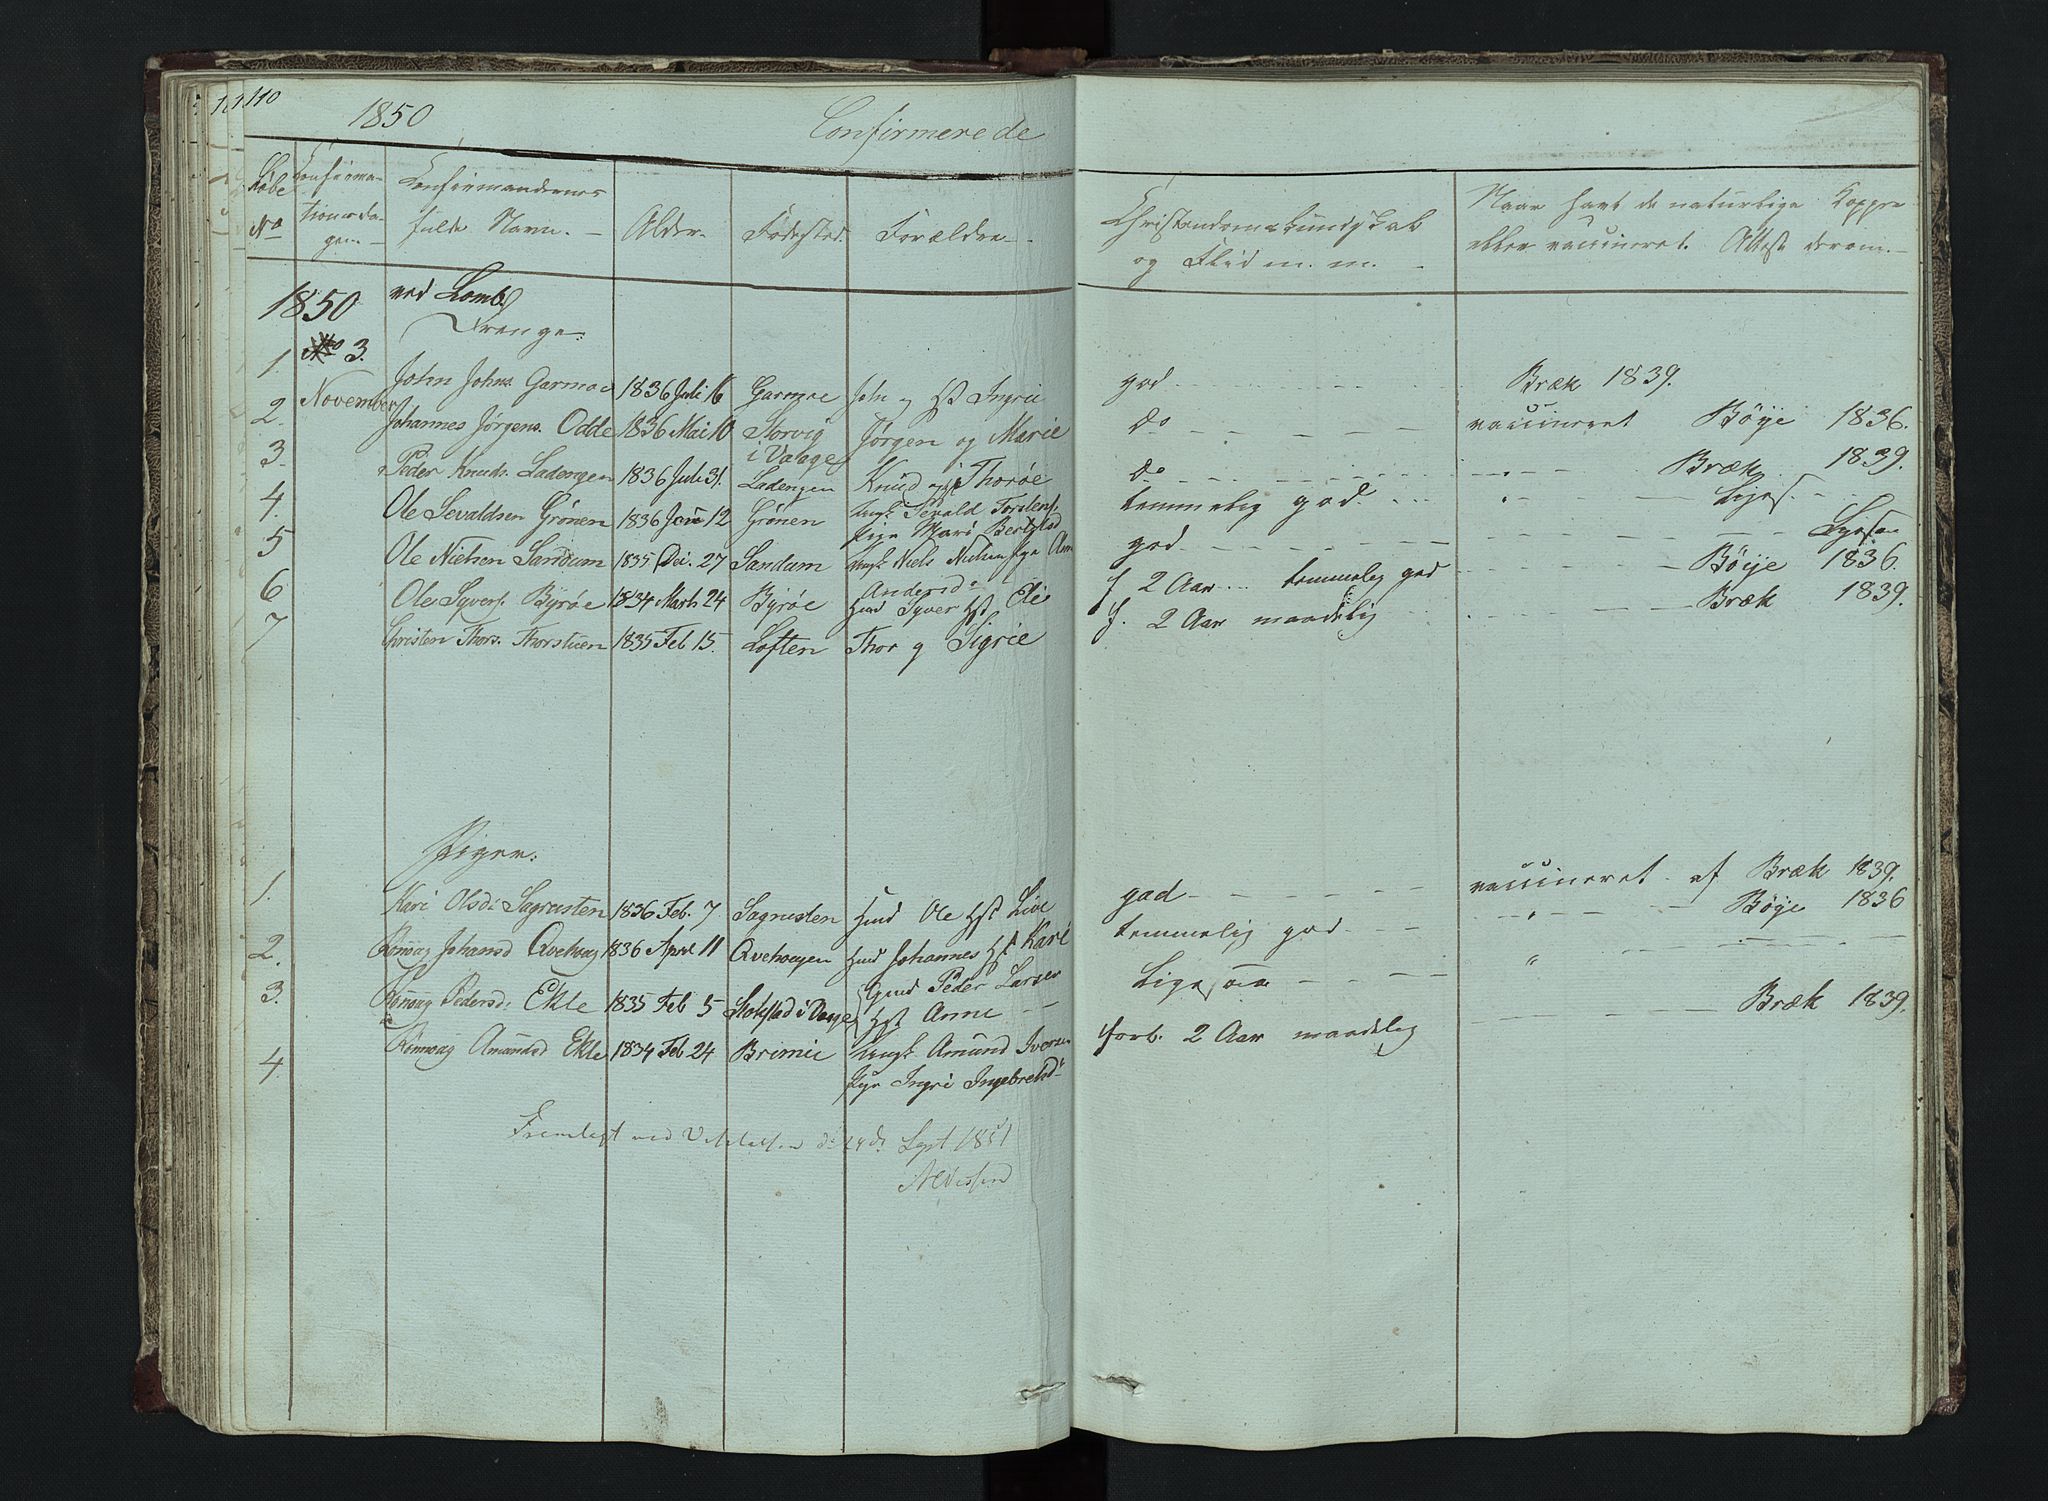 110
1850 Confirmerede
Løbe No Confirmationsdagen Confirmandernes fulde Navn. Alder. Fødested. Forældre. Christendomskundskab og Flid m. m. Naar havt de naturlige Kopper eller vaccineret. Attest derom.
1850 ved Lomb
Drenge.
No 3. November
1. John Johns. Garmoe 1836 Juli 6 Garmoe John og Hst Ingrie god Bræk 1839.
2. Johannes Jørgens. Odde 1836 Mai 10 Storvig i Vaage Jørgen og Marie do vaccineret Bøye 1836.
3. Peder Knuds. Ladengen 1836 Juli 31. Ladengen Knud og Thorøe do Bræk 1839.
4. Ole Sevaldsen Grønen 1836 12 Grønen Ungk Sevald Torstens. Pige Mari temmelig god Liges.
5 Ole Nielsen Sandum 1835 Dec. 27 Sandum Ungk Niels Nielsen Pge Andersd. god
6 Ole Syvers. Byrøe 1834 Marts 24 Byrøe Hmd Syver Hst Eli f. 2 Aar temmelig god Bøye 1836.
7 Christen Thors. Thorstuen 1835 Feb 15. Loften Thor og Sigrie f. 2 Aar maadelig Bræk 1839.
Piger.
1. Kari Olsd. Sagrusten 1836 Feb. 7 Sagrusten Hmd Ole Hst Live god vaccineret af Bræk 1839.
2. Rønnog Johansd Qvehoug 1836 April 11 Qvehougen Hmd Johannes Hst Kari temmelig god Bøye 1836
3. Rønnog Pedersd. Ekle 1835 Feb 5 Stokstad i Vaage Gmd Peder Larsen Hst Anne Ligesaa
4. Rønnoug Amundsd Ekle 1834 Feb 24 Brimie Ungk Amund Iversen Pige Ingri Ingebretsd. forb. 2 Aar maadelig Bræk 1839.
Fremlagt ved Visitatsen d. 24de Sept 1851